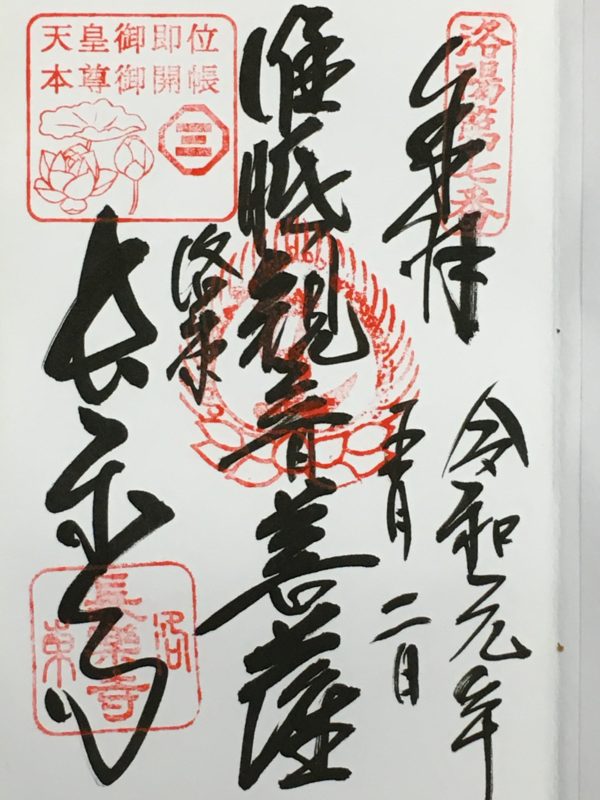 洛陽第七番
奉拝
令和元年
五月二日
准胝観音菩薩
洛東
長楽寺
天皇御即位
本尊御開帳
三
洛
長楽寺
東